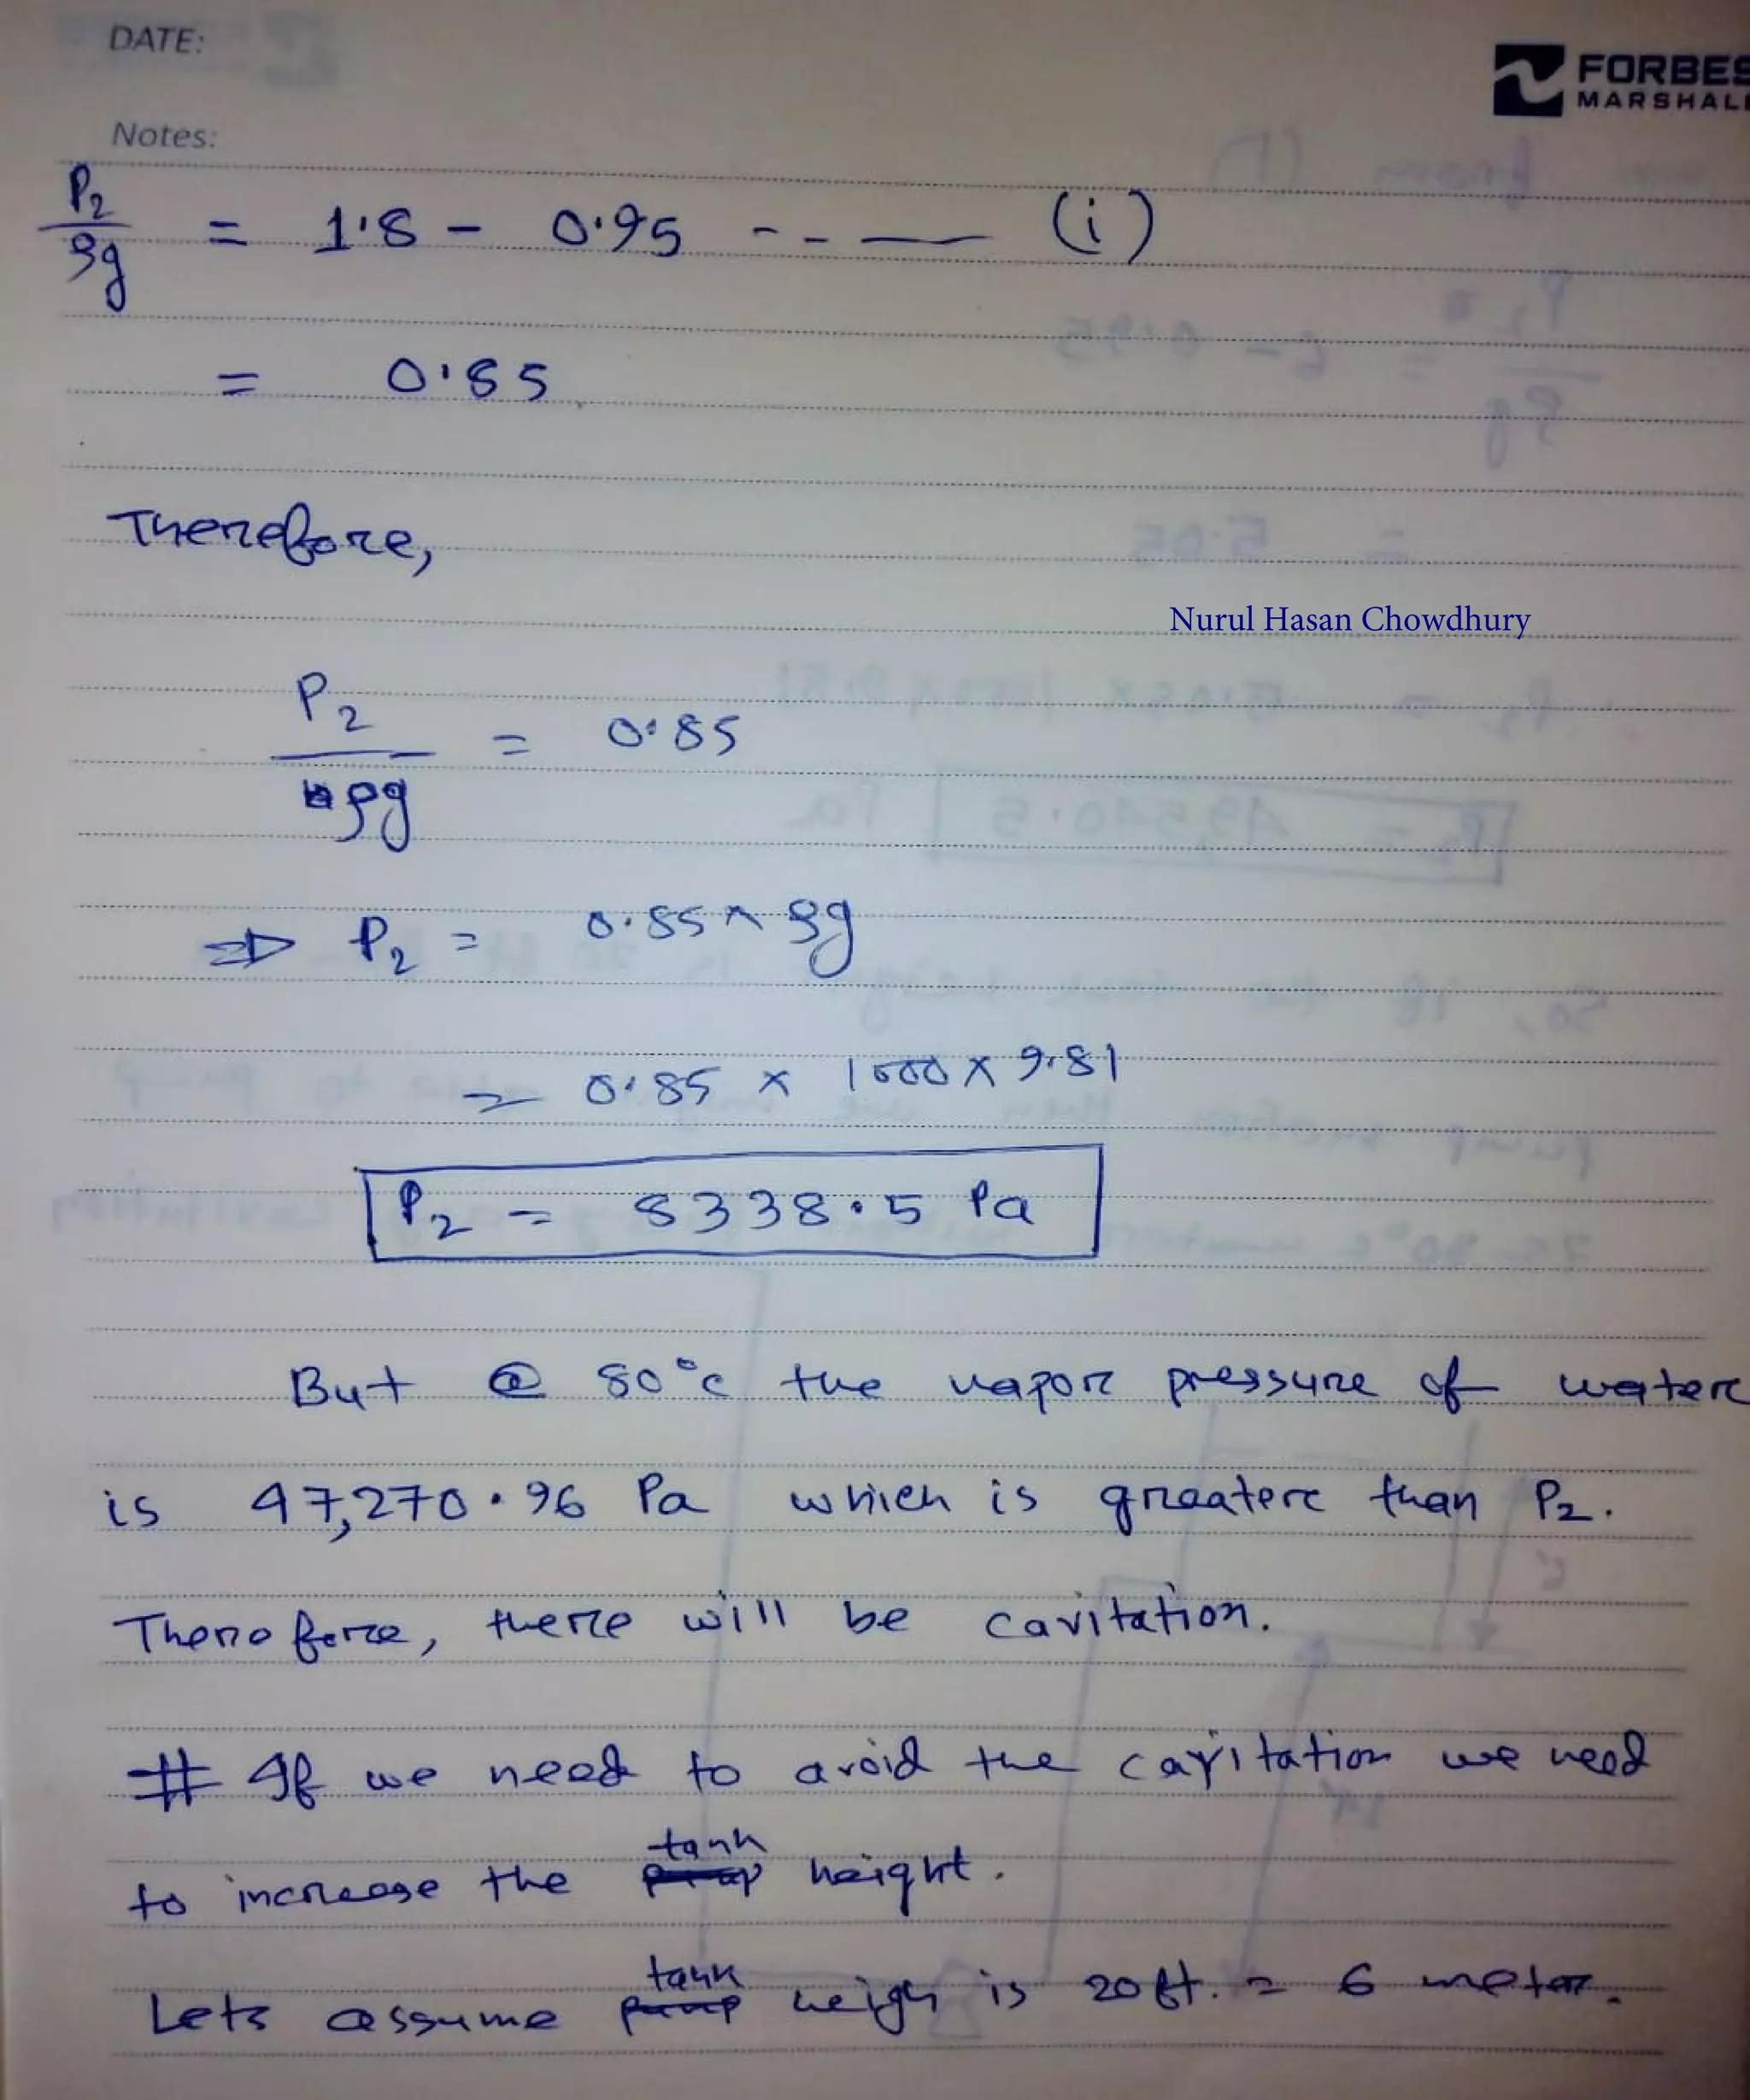 DATE:
FORBES
MARSHALL
Notes:
P₂/ρg = 1.8 - 0.95 ----- (i)
= 0.85
Therefore,
Nurul Hasan Chowdhury
P₂/ρg = 0.85
⇒ P₂ = 0.85 × ρg
= 0.85 × 1000 × 9.81
P₂ = 8338.5 Pa
But @ 80°c the vapor pressure of water
is 47,270.96 Pa which is greater than P₂.
Therefore, there will be cavitation.
# If we need to avoid the cavitation we need
to increase the tank height.
Lets assume tank heigh is 20 ft. = 6 meter.